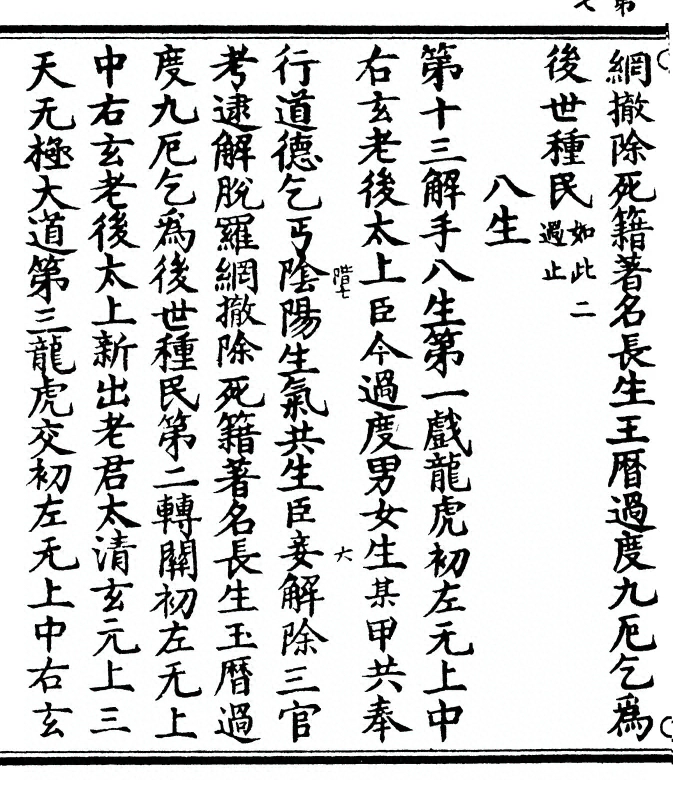 網撤除死籍著名長生王曆過度九厄乞爲
後世種民如此二過止
八生
第十三解手八生第一戲龍虎初左无上中
右玄老後太上臣今過度男女生某甲共奉
階七
大
行道德乞丐陰陽生氣共生臣妾解除三官
考逮解脫羅網撤除死籍著名長生玉曆過
度九厄乞爲後世種民第二轉關初左无上
中右玄老後太上新出老君太清玄元上三
天无極大道第三龍虎交初左无上中右玄